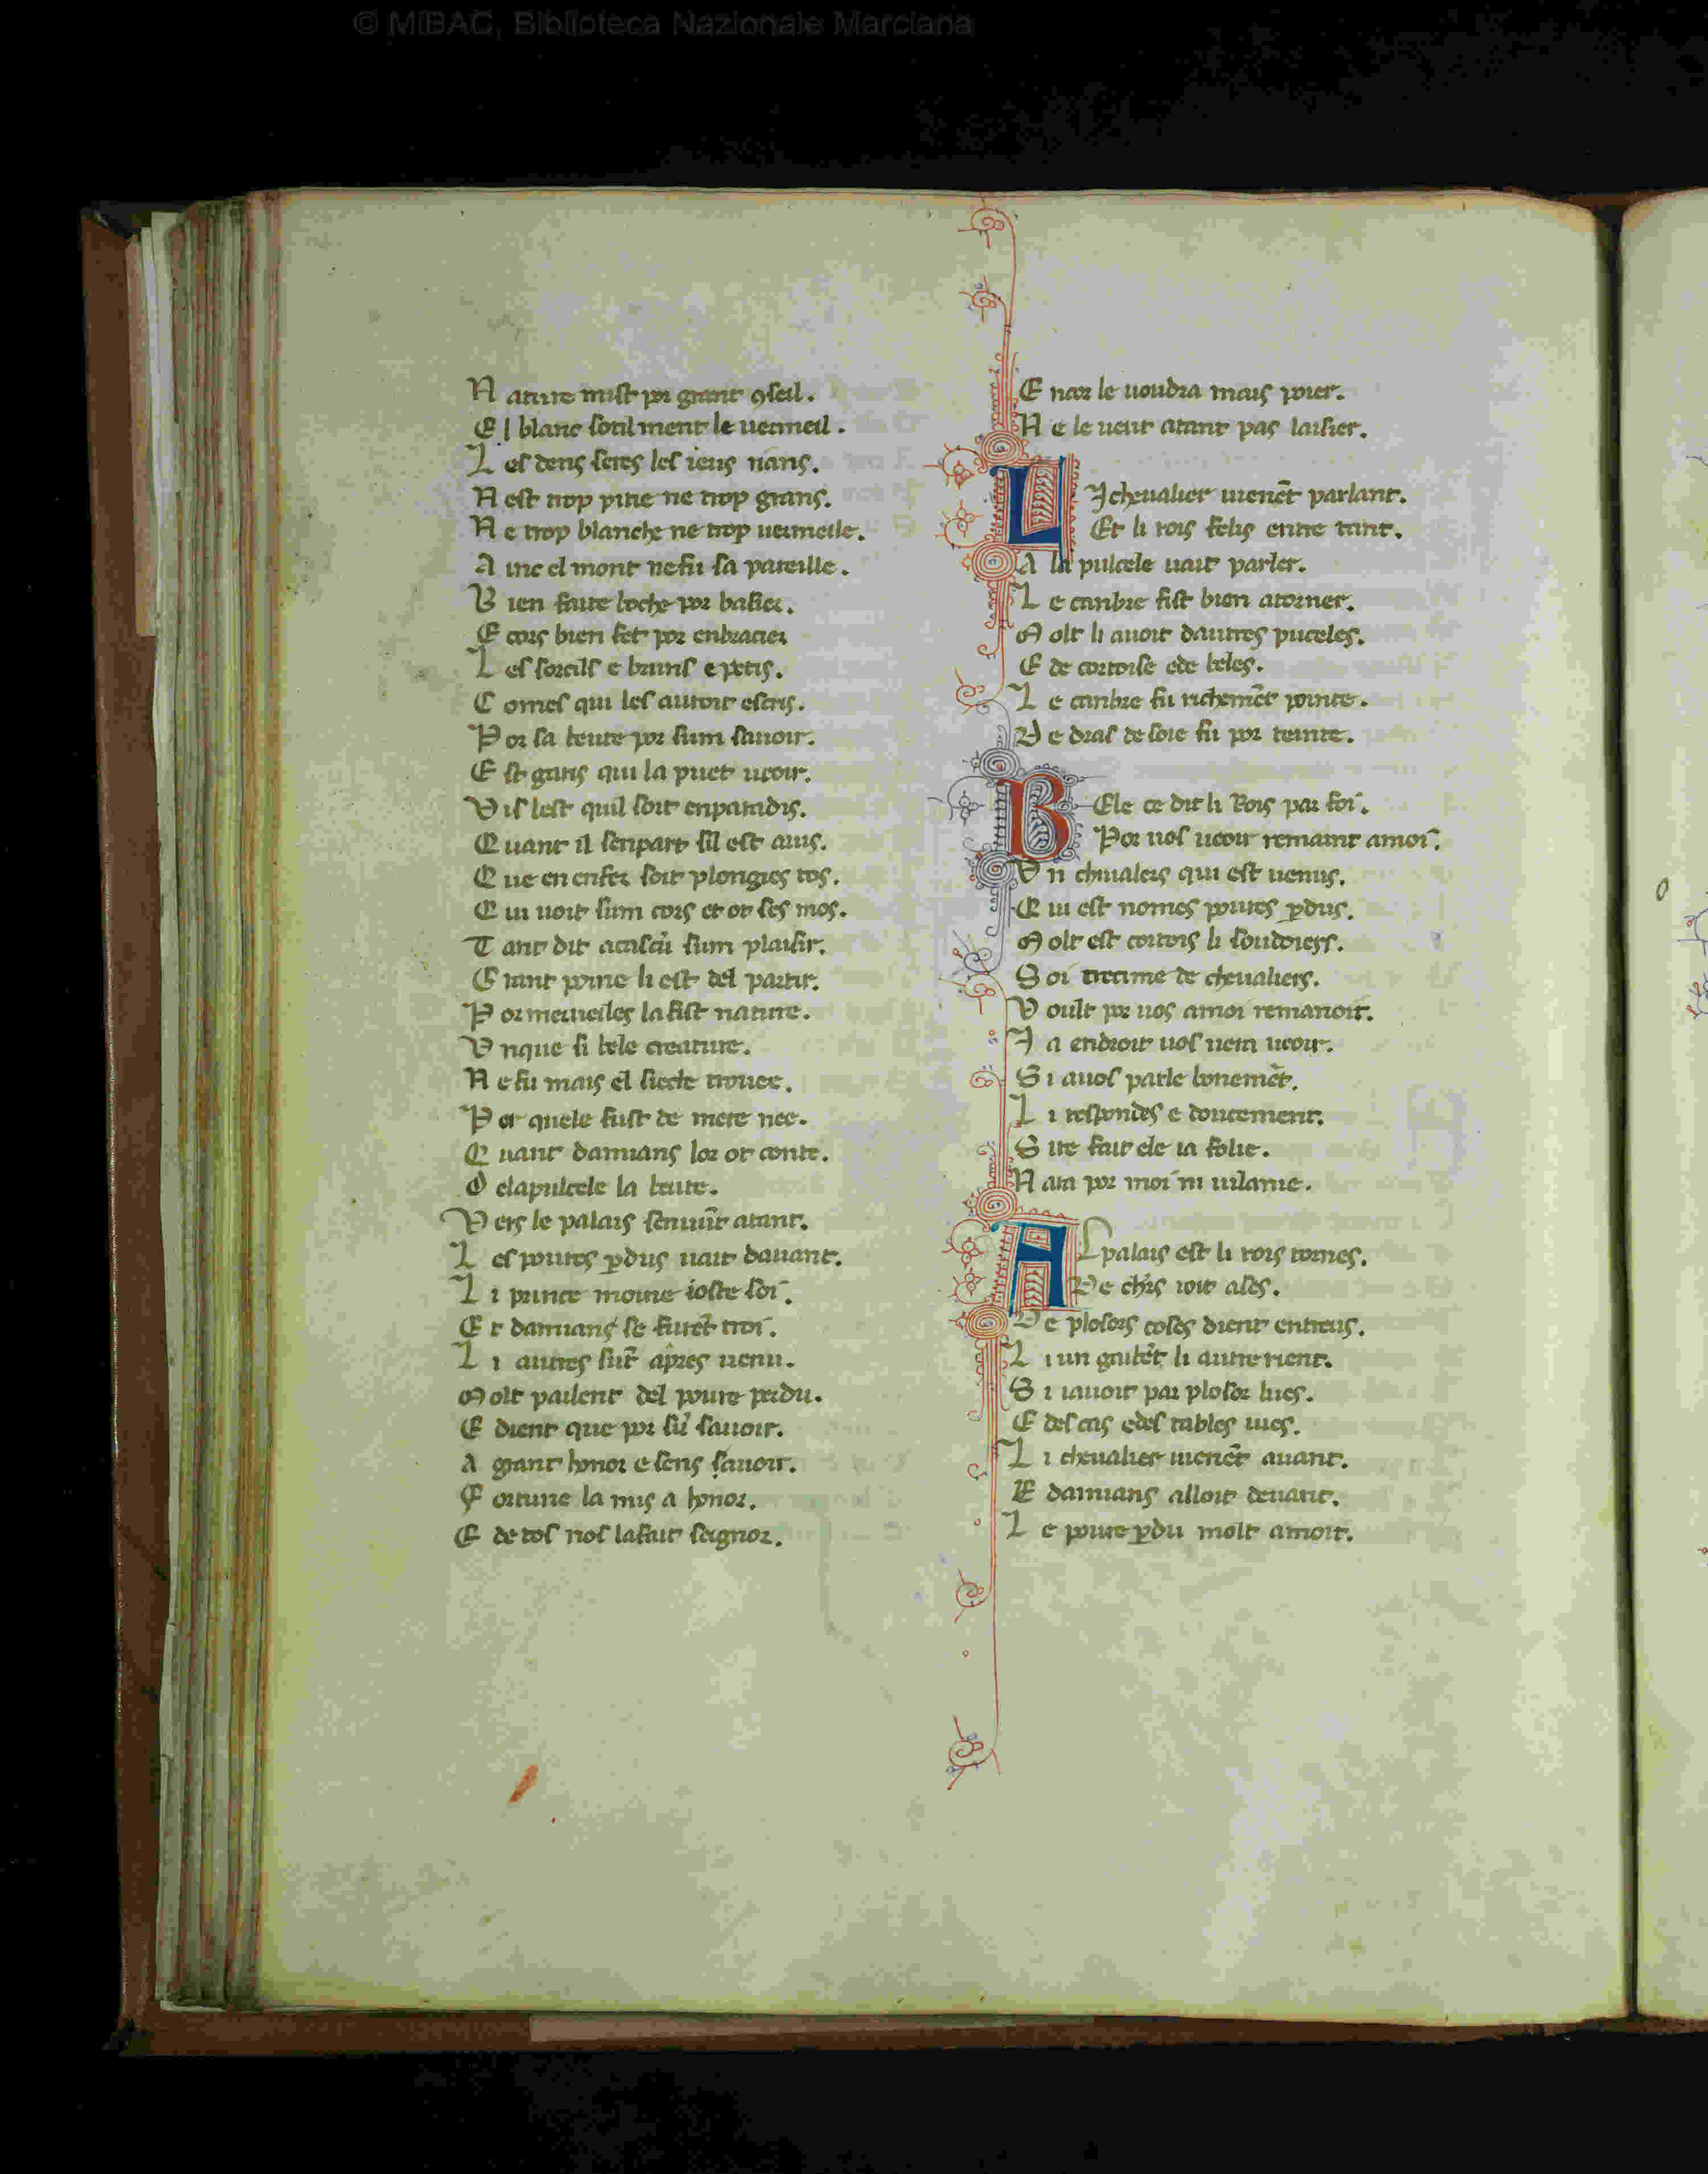 © MiBAC, Biblioteca Nazionale Marciana
N ature mist por grant ꝯseil.
E l blanc sotilment le uermeil.
L es dens seres les ieus uairs.
N est trop pitie ne trop grans.
N e trop blanche ne trop uermeille.
A inc el mont ne fu sa pareille.
B ien faite boche por baisier.
E cors bien fet por enbracier
L es sorcils e bruns e petis.
C omes qui les auroit escris.
P or sa beute por sum sauoir.
E st garis qui la puet ueoir.
V is lest quil soit enparadis.
Q uant il senpart sil est auis.
Q ue en enfer soit plongies tos.
Q ui uoit sum cors et ot ses mos.
T ant dit acascū sum plaisir.
G rant poine li est del partir.
P or merueiles la fist nature.
U nque si bele creature.
N e fu mais el siecle trouee.
P or quele fust de mere nee.
Q uant damians lor ot conte.
O elapulcele la beute.
V ers le palais senuiñt atant.
L es poures ꝑdus uait dauant.
L i prince moine ioste soi.
E t damians se furēt troi.
L i autres sūt apres uenu.
M olt parlent del poure perdu.
E dient que por sū sauoir.
A grant honor e sens sauoir.
F ortune la mis a honor.
E de tos nos lafait seignor.
E ncor le uoudra mais poier.
N e le ueut atant pas laisier.
L Ichevalier uienēt parlant.
Et li rois felis entre tant.
A la pulcele uait parler.
L e canbre fist bien atorner.
M olt li auoit dautres puceles.
E de cortoise ede beles.
L e canbre fu richemēt pointe.
D e dras de soie fu por teinte.
B Ele ce dit li Rois par foi.
Por uos ueoir remaint amoi.
U n chiualers qui est uenus.
Q ui est nomes poures ꝑdus.
M olt est cortois li soudoiers.
S oi trecime de chevaliers.
V oult por uos amoi remanoir.
I a endroit uos uera ueoir.
S i auos parle bonemēt.
L i respondes e doucement.
S ire fait ele ia folie.
N ara por moi ni uilanie.
A L palais est li rois tornes.
De chrs ioit ases.
D e plosors coses dient entreus.
L i un gabēt li autre rient.
S i iauoit par plosor lues.
E des eas edes tables iues.
L i cheualier uienēt auant.
E damians alloit deuant.
L e poure ꝑdu molt amoit.